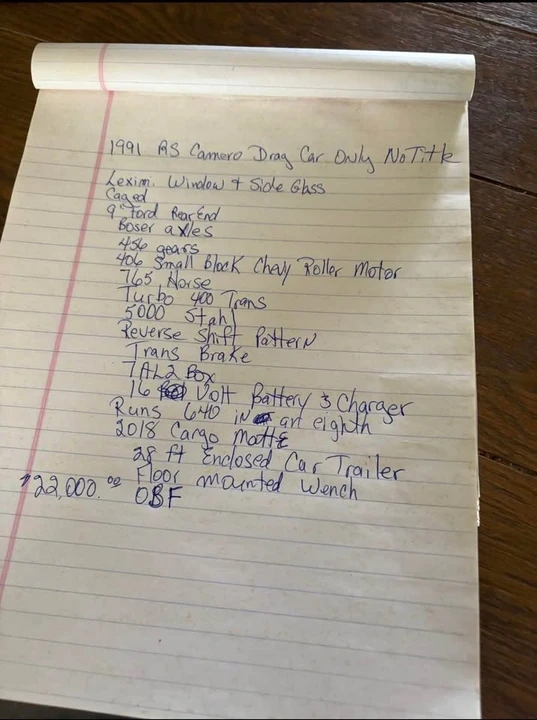 1991 RS Camero Drag Car Only No Title
Lexim. Window + Side Glass
Caged
9" Ford Rear End
Boser axles
456 gears
406 Small Block Chevy Roller Motor
765 Horse
Turbo 400 Trans
5000 Stahl
Reverse Shift Pattern
Trans Brake
7AL2 Box
16 Volt Battery & Charger
Runs 640 in an eighth
2018 Cargo Matte
28 ft Enclosed Car Trailer
Floor mounted Wench
$22,000.00 OBF